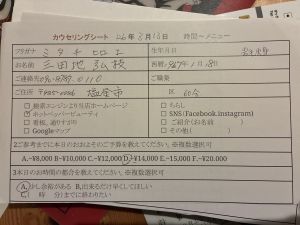 カウセリングシート 26年3月16日 時間〜メニュー
フリガナ ミタチ ヒロト 生年月日
お名前 三田地 弘枝 西暦 1月18日
ご連絡先 ご職業
ご住所 〒985-0036 塩釜市 区 60分
□検索エンジンより当店ホームページ □ちらし
☑ホットペッパービューティ □SNS(Facebook.instagram)
□看板、通りすがり □ご紹介(お名前 )
□Googleマップ □その他( )
2ご参考までに本日のおおよそのご予算を教えてください。※複数選択可
A.~¥8,000 B~¥10,000 C.~¥12,000 D.~¥14,000 E.~15,000 F.~¥20.000
3本日のお時間の都合を教えてください。※複数選択可
A.少し余裕がある B,出来るだけ早くしてほしい
C( 時 分)までに終わりたい